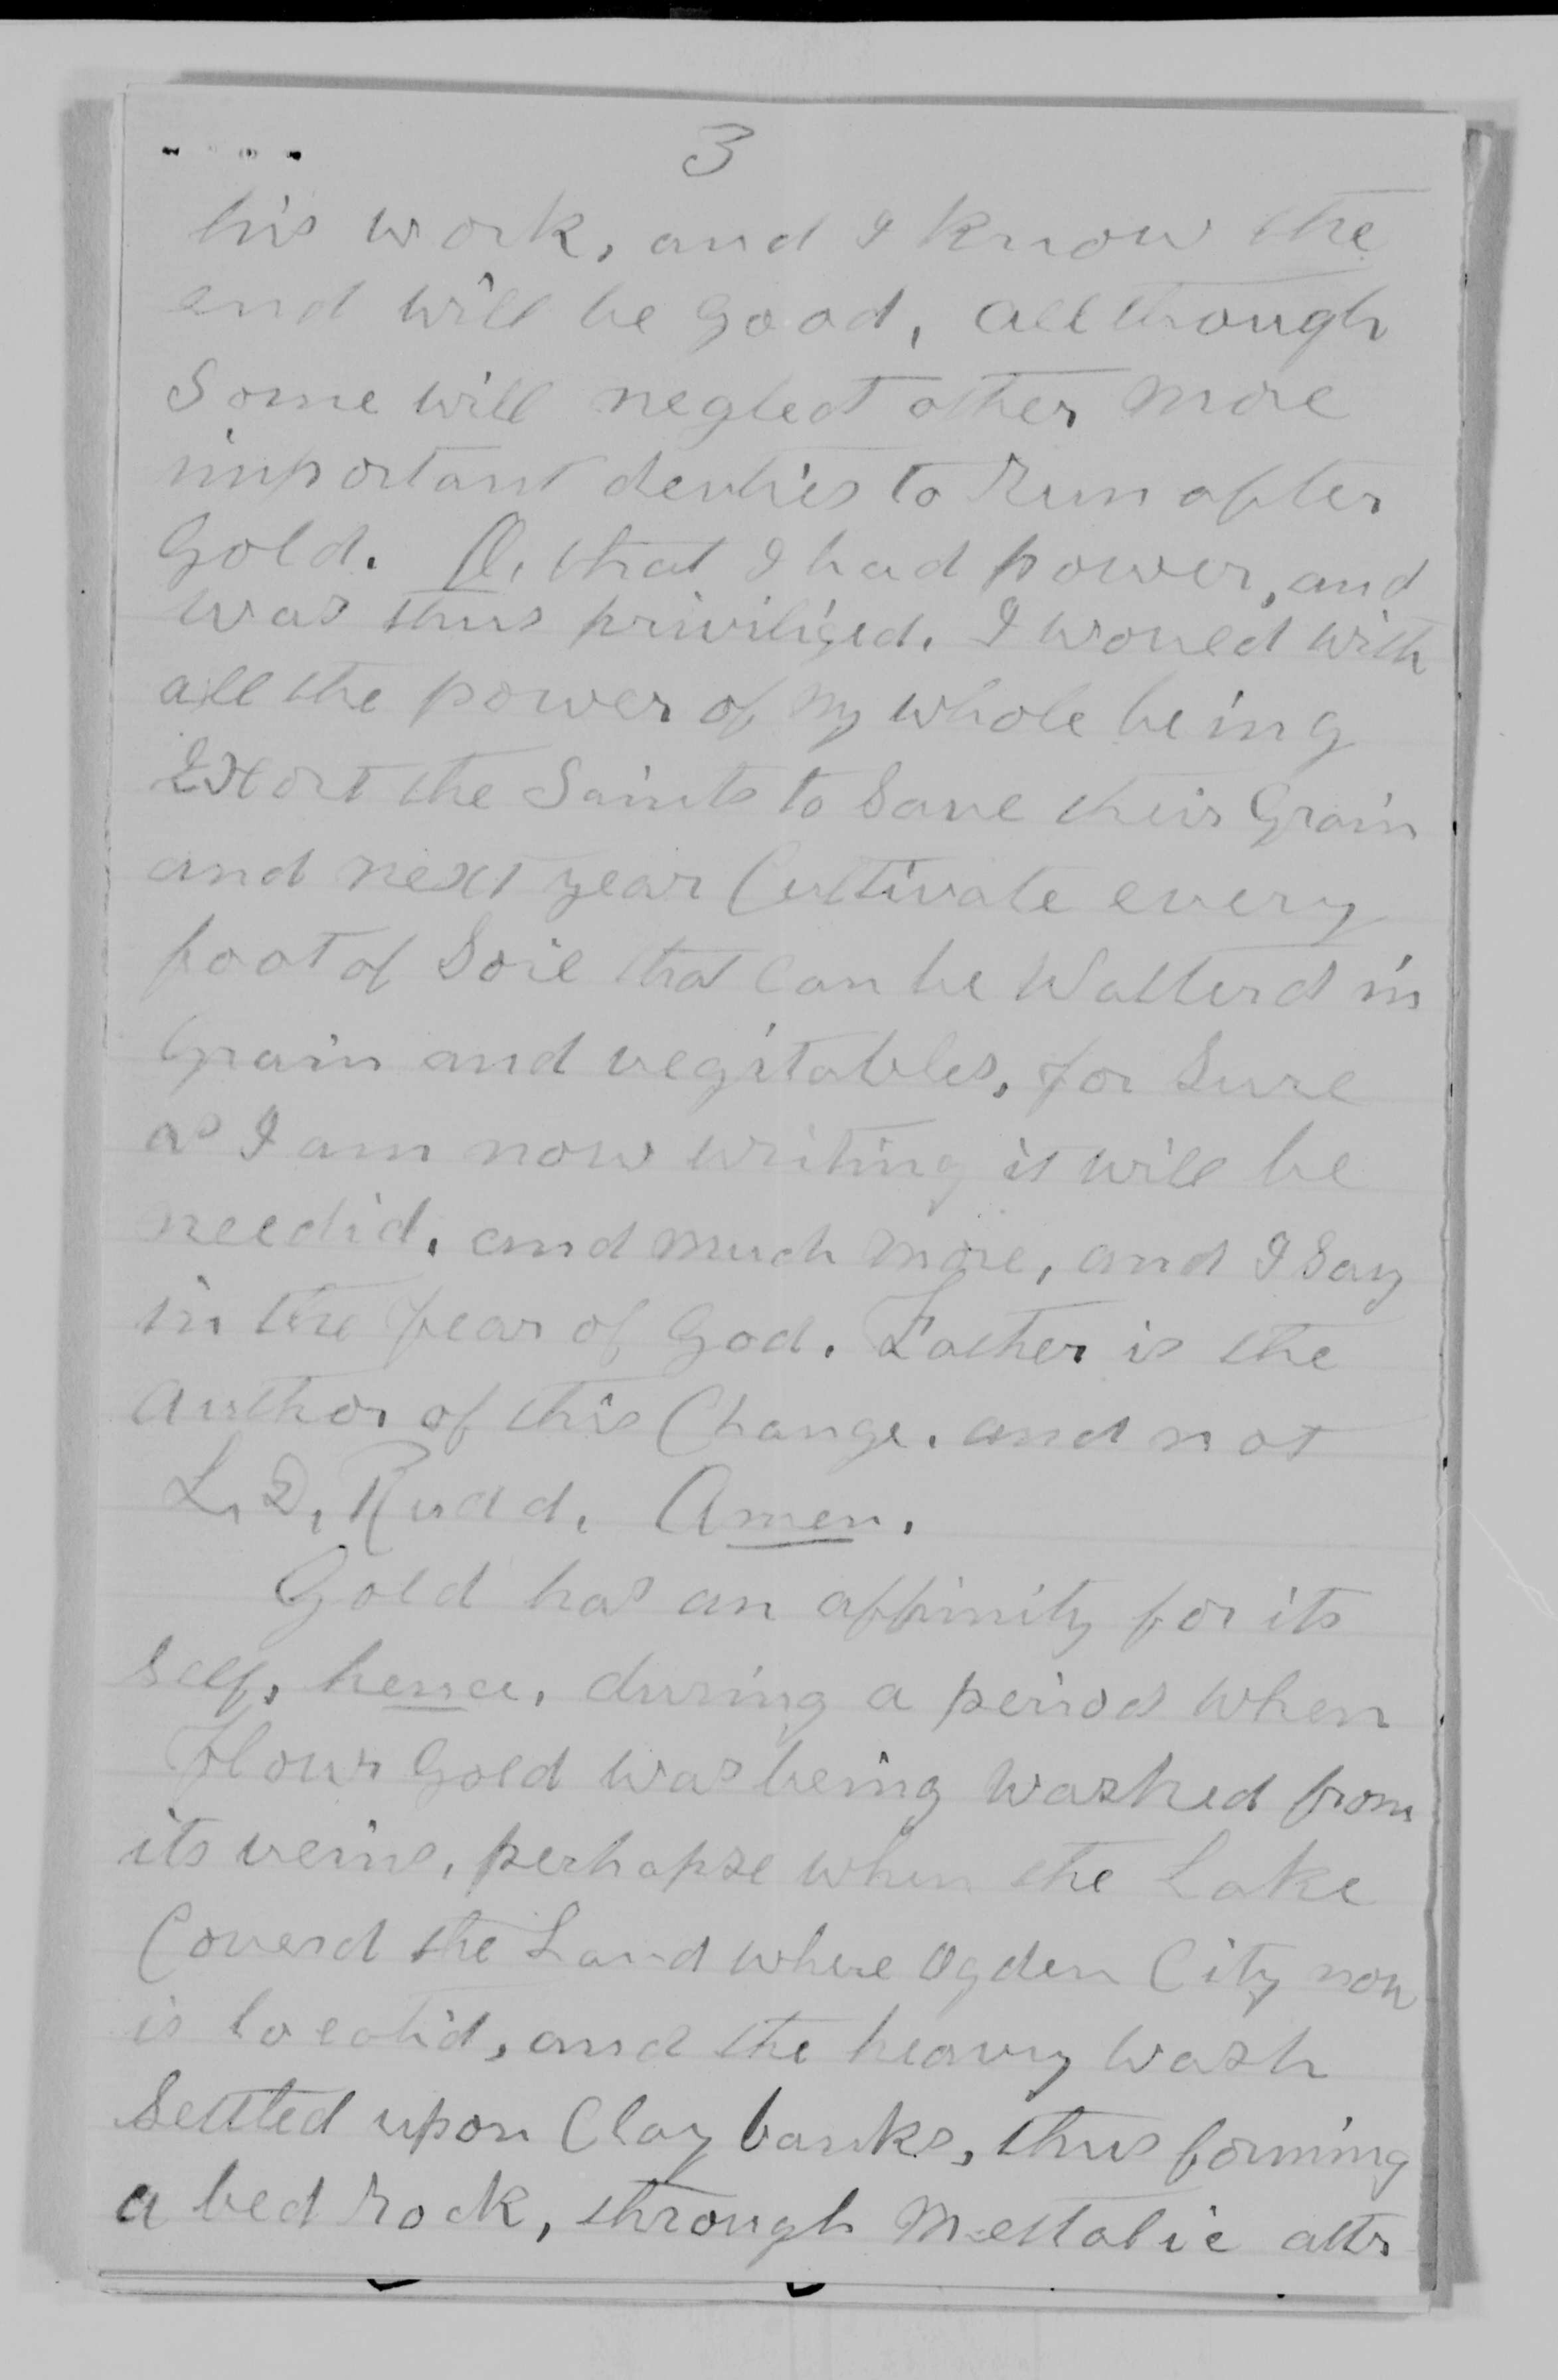 3
his work, and I know the
end will be good, allthough
Some will neglect other more
important deuties to Run after
Gold. O, that I had power, and
was thus priviliged. I would with
all the power of my whole being
Exort the Saints to Save their Grain
and next year Cultivate every
foot of Soil that Can be Watterd in
Grain and vegitables, for Sure
as I am now writing it will be
needid, and much more, and I Say
in the fear of God. Father is the
author of this Change. and not
L. D. Rudd. Amen.
Gold has an affinity for its
Self, hence, during a period when
Flour Gold was being washed from
its veins, perhapse when the Lake
Coverd the Land where Ogden City now
is locatid, and the heavy wash
Settled upon Clay banks, thus forming
a bed Rock, through Mettalic attr